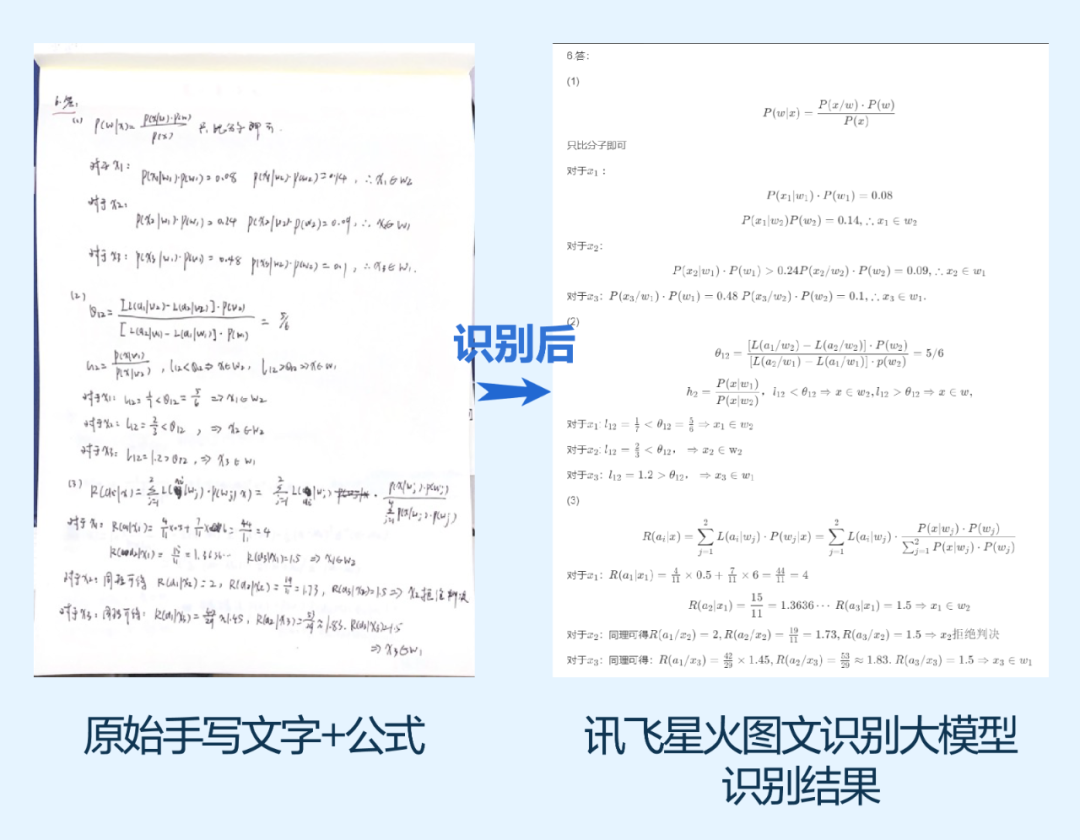 6.答:
(1) P(w|x)= P(x|w)·P(w) / P(x) 只比分子即可.
对于x1:
P(x1|w1)·P(w1)=0.08 P(x1|w2)·P(w2)=0.14, ∴x1∈w2
对于x2:
P(x2|w1)·P(w1)=0.24 P(x2|w2)·P(w2)=0.09, ∴x2∈w1
对于x3: P(x3|w1)·P(w1)=0.48 P(x3|w2)·P(w2)=0.1, ∴x3∈w1.
(2)
θ12= [L(a1|w2)-L(a2|w2)]·P(w2) / [L(a2|w1)-L(a1|w1)]·P(w1) = 5/6
l12= P(x|w1) / P(x|w2), l12<θ12⇒x∈w2, l12>θ12⇒x∈w1
对于x1: l12=1/7<θ12=5/6 ⇒x1∈w2
对于x2: l12=2/3<θ12, ⇒x2∈w2
对于x3: l12=1.2>θ12, ⇒x3∈w1
(3) R(ai|x)=
对于x1: R(a1|x1)=4/11×0.5+7/11×6=44/11=4
R(a2|x1)=15/11=1.3636… R(a3|x1)=1.5 ⇒x1∈w2
对于x2: 同理可得 R(a1|x2)=2, R(a2|x2)=19/11=1.73, R(a3|x2)=1.5⇒x2拒绝判决
对于x3: 同理可得: R(a1|x3)=42/29≈1.45, R(a2|x3)=53/29≈1.83. R(a3|x3)=1.5
⇒x3∈w1
识别后
6.答:
(1)
P(w|x) = P(x/w)·P(w) / P(x)
只比分子即可
对于x₁:
P(x₁|w₁)·P(w₁) = 0.08
P(x₁|w₂)P(w₂) = 0.14,∴x₁ ∈ w₂
对于x₂:
P(x₂|w₁)·P(w₁) > 0.24P(x₂/w₂)·P(w₂) = 0.09,∴x₂ ∈ w₁
对于x₃: P(x₃/w₁)·P(w₁) = 0.48 P(x₃/w₂)·P(w₂) = 0.1,∴x₃ ∈ w₁.
(2)
θ₁₂ = [L(a₁/w₂) − L(a₂/w₂)]·P(w₂) / [L(a₂/w₁) − L(a₁/w₁)]·p(w₂) = 5/6
h₂ = P(x|w₁) / P(x|w₂), l₁₂ < θ₁₂ ⇒ x ∈ w₂, l₁₂ > θ₁₂ ⇒ x ∈ w,
对于x₁: l₁₂ = 1/7 < θ₁₂ = 5/6 ⇒ x₁ ∈ w₂
对于x₂: l₁₂ = 2/3 < θ₁₂, ⇒ x₂ ∈ w₂
对于x₃: l₁₂ = 1.2 > θ₁₂, ⇒ x₃ ∈ w₁
(3)
R(aᵢ|x) = ∑_{j=1}^{2} L(aᵢ|wⱼ)·P(wⱼ|x) = ∑_{j=1}^{2} L(aᵢ|wⱼ)· P(x|wⱼ)·P(wⱼ) / ∑_{j=1}^{2} P(x|wⱼ)·P(wⱼ)
对于x₁: R(a₁|x₁) = 4/11 × 0.5 + 7/11 × 6 = 44/11 = 4
R(a₂|x₁) = 15/11 = 1.3636⋯ R(a₃|x₁) = 1.5 ⇒ x₁ ∈ w₂
对于x₂: 同理可得R(a₁/x₂) = 2, R(a₂/x₂) = 19/11 = 1.73, R(a₃/x₂) = 1.5 ⇒ x₂拒绝判决
对于x₃: 同理可得: R(a₁/x₃) = 42/29 × 1.45, R(a₂/x₃) = 53/29 ≈ 1.83. R(a₃/x₃) = 1.5 ⇒ x₃ ∈ w₁
原始手写文字+公式
讯飞星火图文识别大模型
识别结果